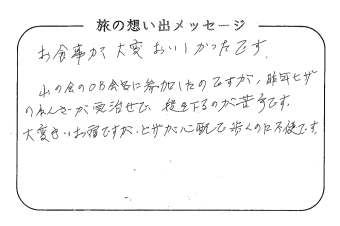 旅の想い出メッセージ
お食事が大変おいしかったです。
山の会のOB会に参加したのですが、昨年ヒザ
のねんざが完治せず、段を下るのが苦手です。
大変良いお宿ですが、ヒザが心配で歩くのに不便です